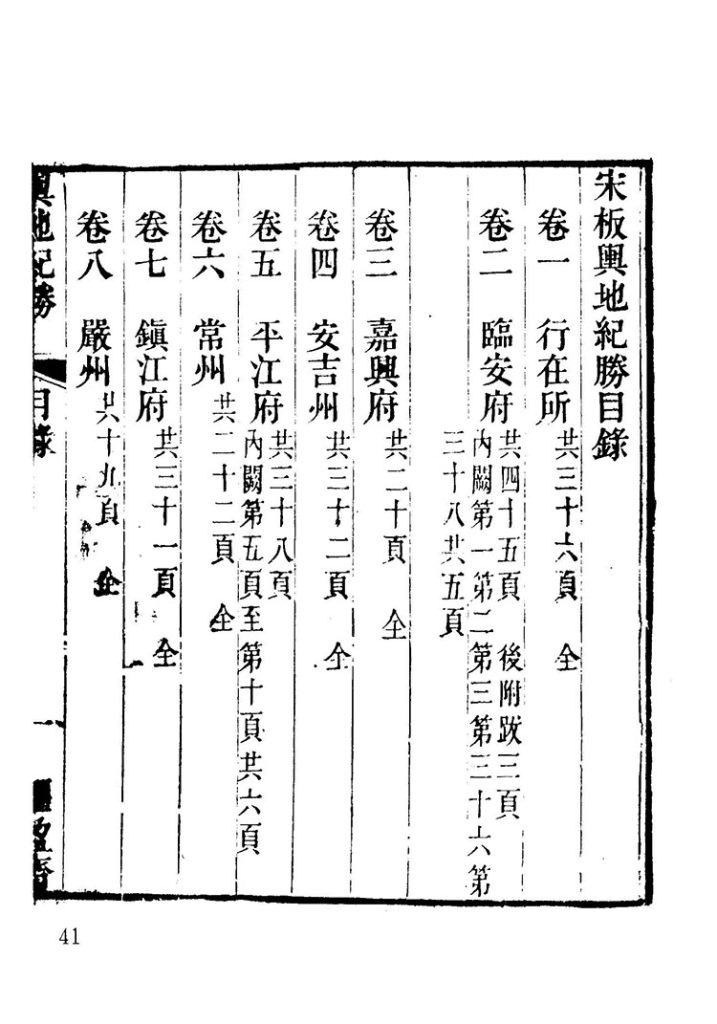 宋板輿地紀勝目錄
卷一　行在所　共三十六頁　全
卷二　臨安府　共四十五頁　後附跋三頁
內闕第一第二第三第三十六第
三十八共五頁
卷三　嘉興府　共二十頁　全
卷四　安吉州　共三十二頁　全
卷五　平江府　共三十八頁
內闕第五頁至第十頁共六頁
卷六　常州　共二十二頁　全
卷七　鎮江府　共三十一頁　全
卷八　嚴州　共十九頁　全
輿地紀勝　目錄
一
41